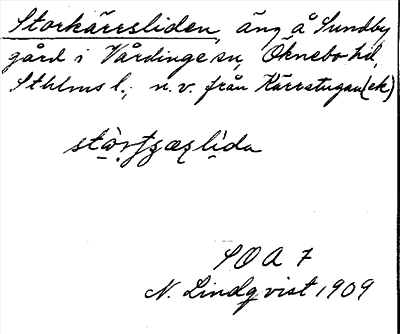 Storkärrsliden, äng å Sundby
gård i Vårdinge sn, Öknebo hd,
Sthlms l.; n.v. från Kärrstugan (ek)
SOA 7
N. Lindqvist 1909